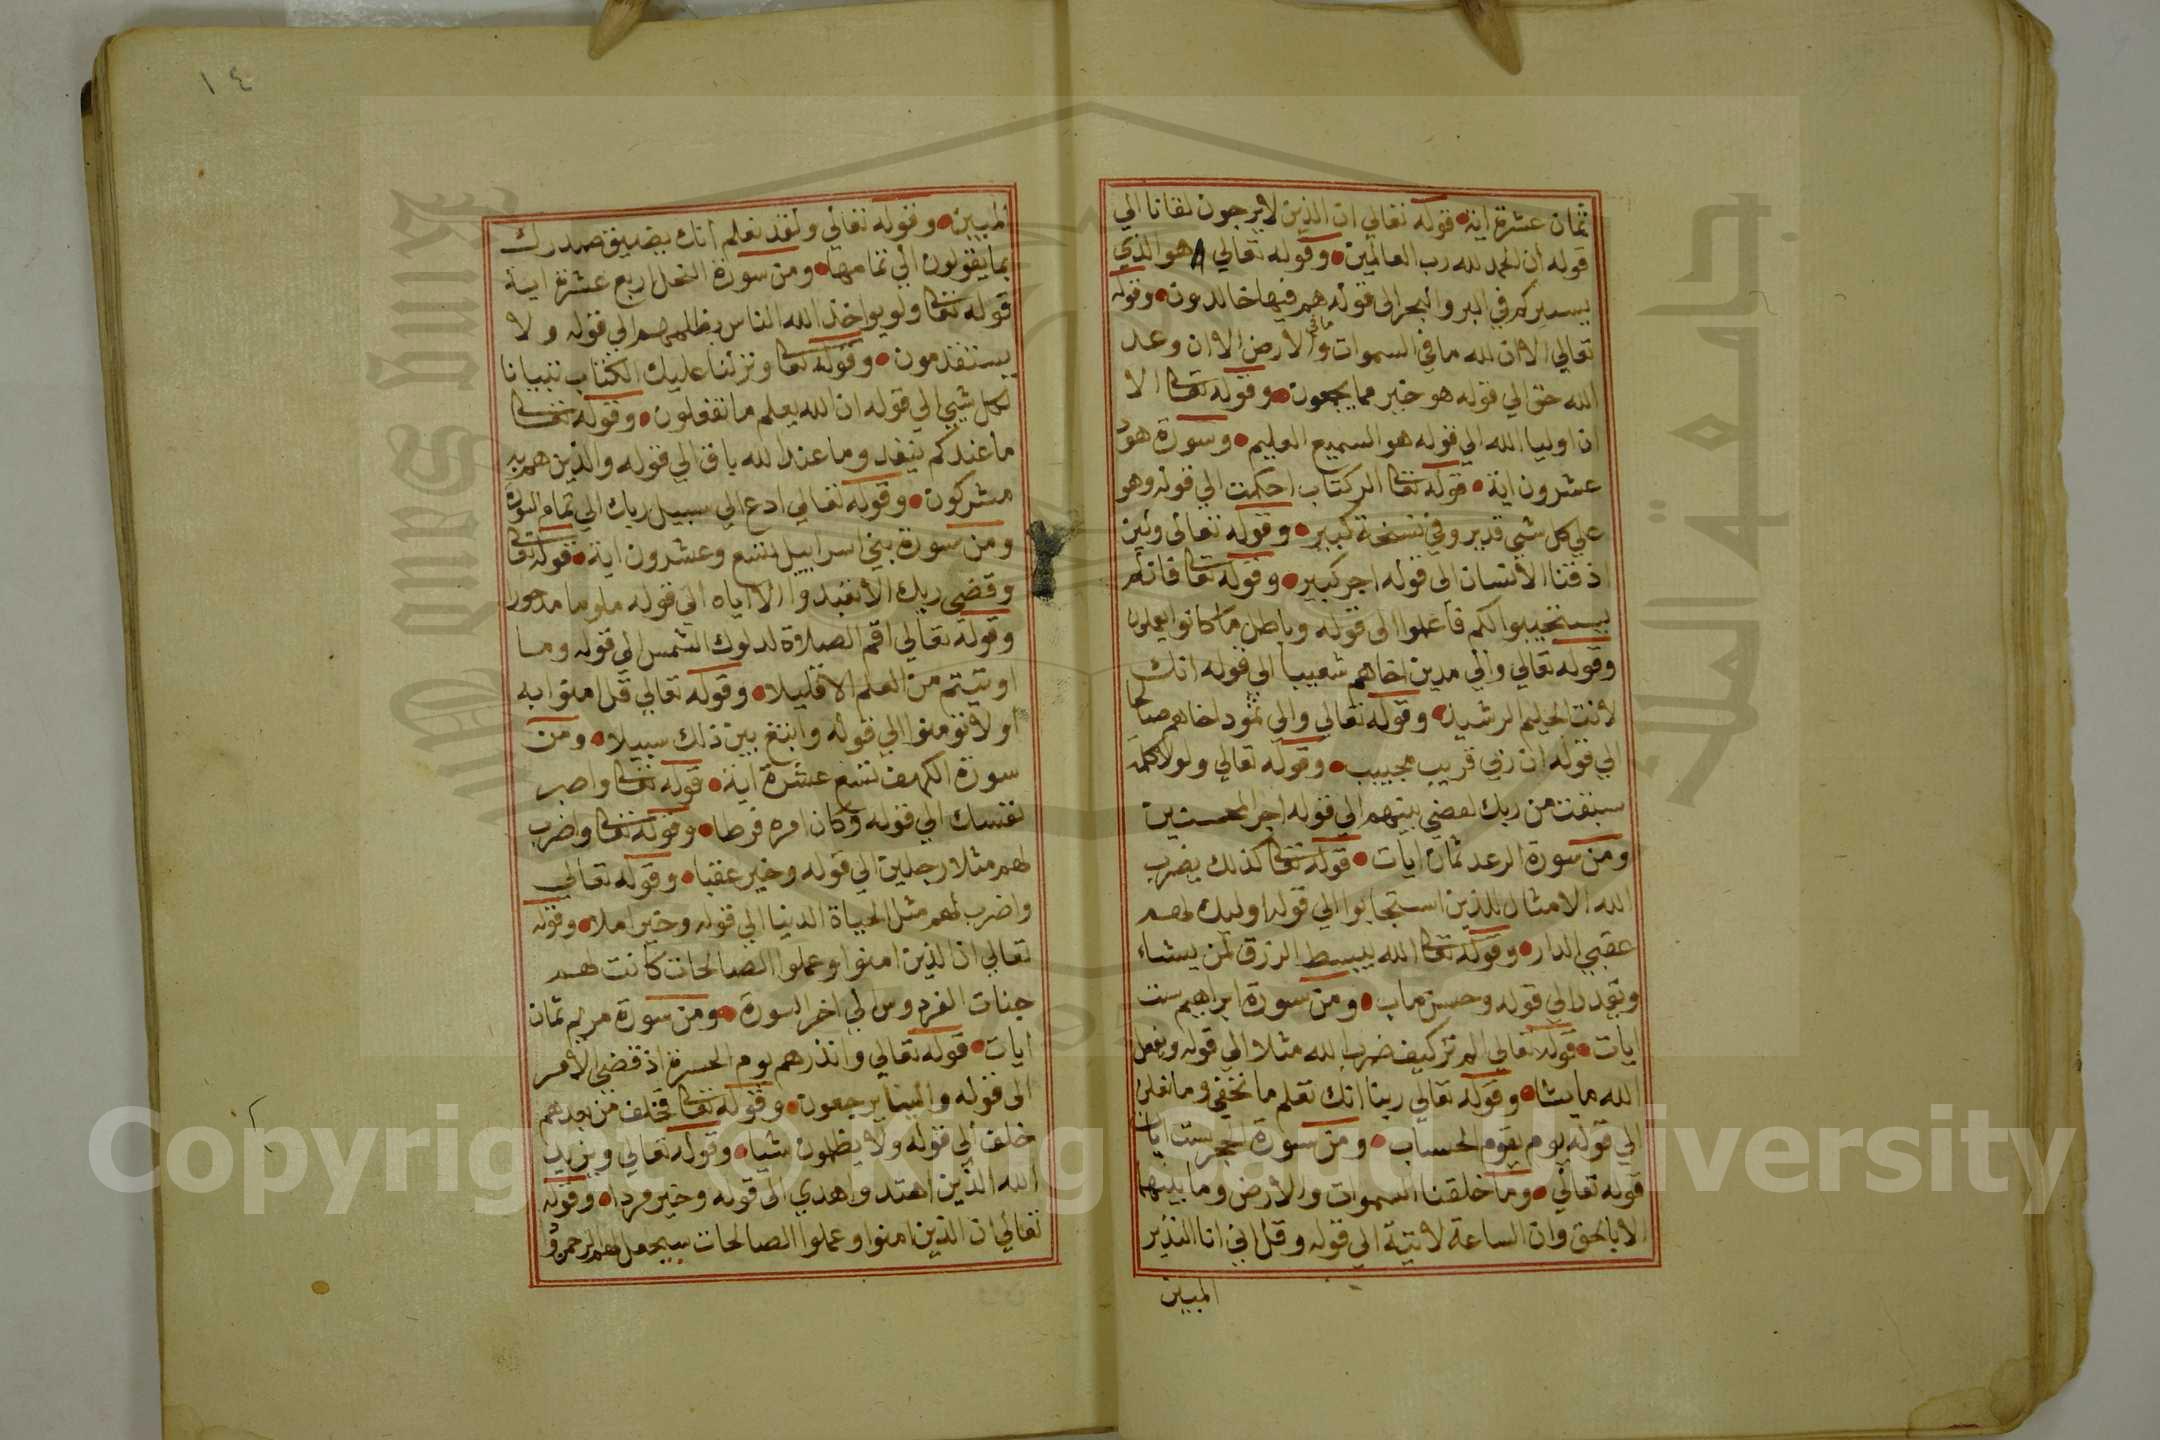 ثمان عشرة اية قوله تعالي ان الذين لا يرجون لقانا الي
قوله ان الحمد لله رب العالمين وقوله تعالي هو الذي
يسيركم في البر والبحر الى قوله هم فيها خالدون وقوله
تعالي الا ان لله ما في السموات وما في الارض الا ان وعد
الله حق الي قوله هو خير مما يجمعون وقوله تعا الا
ان اوليا الله الي قوله هو السميع العليم وسورة هود
عشرون اية قوله تعا الر كتاب احكمت الي قوله وهو
علي كل شي قدير وفي نسخة كبير وقوله تعالى ولين
اذقنا الانسان الى قوله اجر كبير وقوله تعا فان لم
يستجيبوا لكم فاعلموا الى قوله وباطل ما كانوا يعملون
وقوله تعالي والي مدين اخاهم شعيبا الي قوله انك
لانت الحليم الرشيد وقوله تعالي والي ثمود اخاهم صالحا
الي قوله ان ربي قريب مجيب وقوله تعالي ولولا كلمة
سبقت من ربك لقضي بينهم الي قوله اجر المحسنين
ومن سورة الرعد ثمان ايات قوله تعا كذلك يضرب
الله الامثال للذين استجابوا الي قوله اوليك لهم
عقبي الدار وقوله تعا الله يبسط الرزق لمن يشاء
ويقدر الي قوله وحسن ماب ومن سورة ابراهيم ست
ايات قوله تعالي الم تر كيف ضرب الله مثلا الي قوله ويفعل
الله ما يشا وقوله تعالي ربنا انك تعلم ما نخفي وما نعلن
الي قوله يوم يقوم الحساب ومن سورة الحجر ست ايات
قوله تعالي وما خلقنا السموات والارض وما بينهما
الا بالحق وان الساعة لاتية الي قوله وقل اني انا النذير
المبين
١٤
المبين وقوله تعالي ولقد نعلم انك يضيق صدرك
بما يقولون الي تمامها ومن سورة النحل اربع عشرة اية
قوله تعا ولو يواخذ الله الناس بظلمهم الي قوله ولا
يستقدمون وقوله تعا ونزلنا عليك الكتاب تبيانا
لكل شي الي قوله ان الله يعلم ما تفعلون وقوله تعا
ما عندكم ينفد وما عند الله باق الي قوله والذين هم به
مشركون وقوله تعالي ادع الي سبيل ربك الي تمام السورة
ومن سورة بني اسراييل تسع وعشرون اية قوله تعا
وقضي ربك الا تعبدوا الا اياه الي قوله ملوما مدحورا
وقوله تعالي اقم الصلاة لدلوك الشمس الي قوله وما
اوتيتم من العلم الا قليلا وقوله تعالي قل امنوا به
او لا تومنوا الي قوله وابتغ بين ذلك سبيلا ومن
سورة الكهف تسع عشرة اية قوله تعا واصبر
نفسك الي قوله وكان امره فرطا وقوله تعا واضرب
لهم مثلا رجلين الي قوله وخير عقبا وقوله تعالي
واضرب لهم مثل الحياة الدنيا الي قوله وخير املا وقوله
تعالي ان الذين امنوا وعملوا الصالحات كانت لهم
جنات الفردوس الي اخر السورة ومن سورة مريم ثمان
ايات قوله تعالي وانذرهم يوم الحسرة اذ قضي الامر
الى قوله والينا يرجعون وقوله تعا فخلف من بعدهم
خلف الي قوله ولا يظلمون شيا وقوله تعالي ويزيد
الله الذين اهتدوا هدي الي قوله وخير مردا وقوله
تعالي ان الذين امنوا وعملوا الصالحات سيجعل لهم الرحمن ودا
جامعة الملك
King Saud University
Copyright © King Saud University